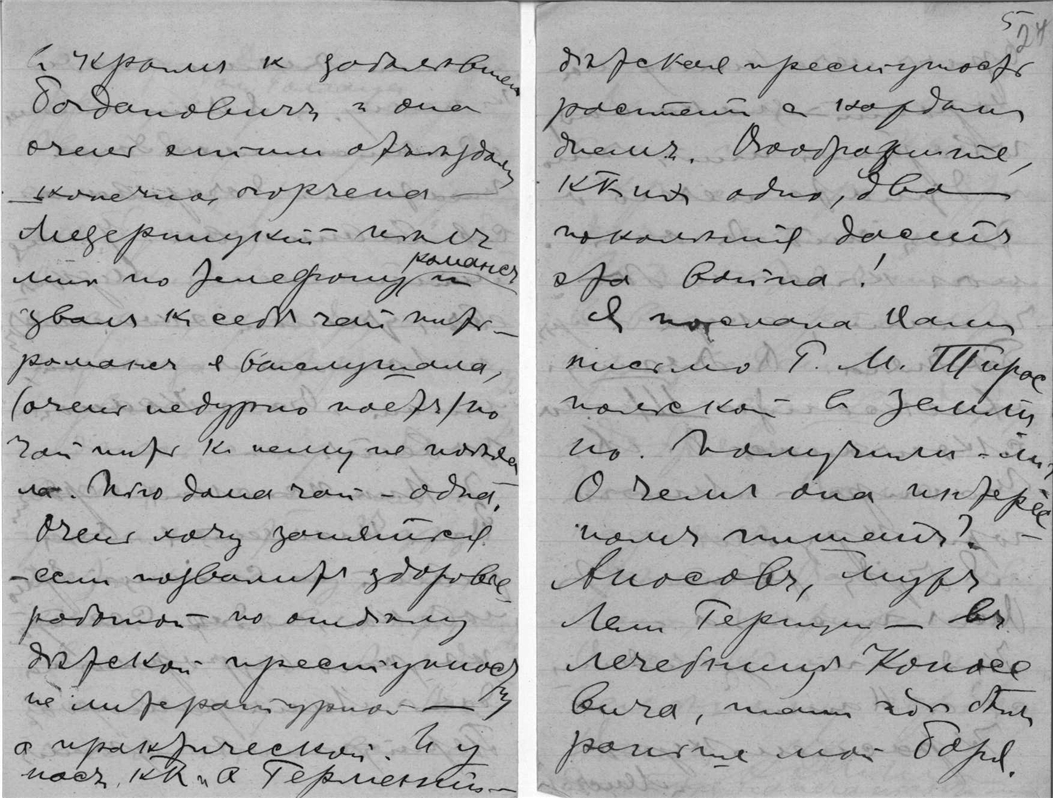 въ Крыму к заболѣвшей
Богдановичъ и она
очень этим отъѣздомъ
конечно, огорчена —
Мезерницкий
мнѣ по телефону романсъ и
звалъ к себѣ чай пить —
романсъ я выслушала,
(очень недурно поетъ) но
чай пить к нему не поѣха
ла. Пью дома чай — одна.
Очень хочу заняться
— если позволитъ здоровье
работой — по отдѣлу
дѣтской преступности
не литературной —
а практической. И у
насъ, какъ и в Германии —
5
24
дѣтская преступность
растетъ с каждым
днемъ. Вообразите,
какихъ одно, два —
поколѣния дастъ
эта война!
Я послала Вамъ
письмо Г. М. Тирас
польской в Землин
но. Получили — ли?
О чемъ она интерес
номъ пишетъ?
Аносовъ, мужъ
Лели Герцун — въ
лечебницѣ Коносе
вича, там гдѣ былъ
раньше мой Боря.